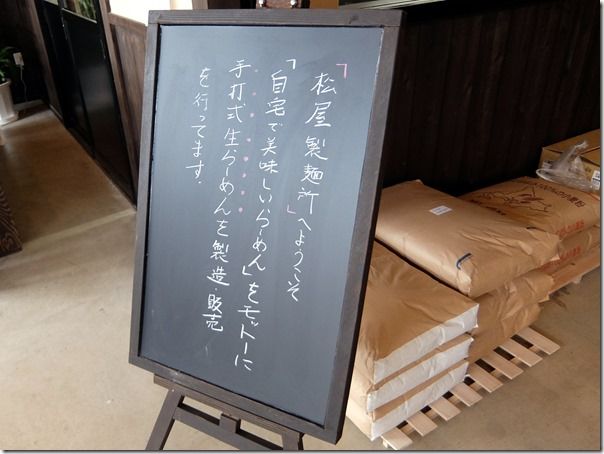 「松屋製麺所」へようこそ
「自宅で美味しいらーめん」をモットーに
手打式生らーめんを製造・販売
を行ってます.